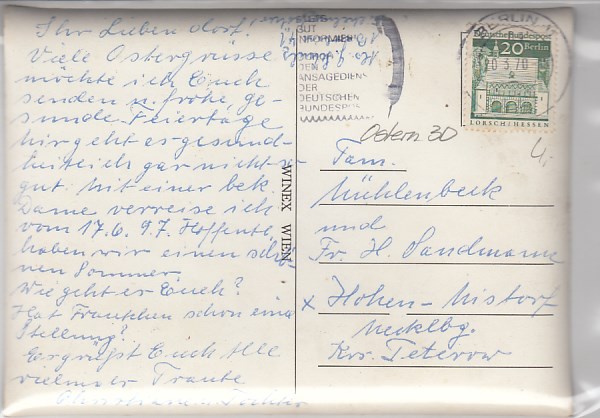 Ihr Lieben dort!
Viele Ostergrüsse
möchte ich Euch
senden u. frohe, ge-
sunde Feiertage
hir geht es gesund-
heitlich gar nicht
gut. Mit einer bek.
Dame verreise ich
vom 17.6. 9.7. Hoffentl.
haben wir einen schö-
nen Sommer.
Wie geht es Euch?
Hat Frauchen schon eine
Stellung?
Es grüßt Euch Alle
vielmaler Traute
GUT
INFORMIERT
DURCH
DEN
ANSAGEDIENST
DER
DEUTSCHEN
BUNDESPOST
BERLIN
Deutsche Bundespost
20 Berlin
LORSCH/HESSEN
Ostern 30
WINEX WIEN
Fam.
Mühlenbeck
und
Fr. H. Sandmann
x Hohen-Mistorf
Mecklbg.
Krs. Teterow